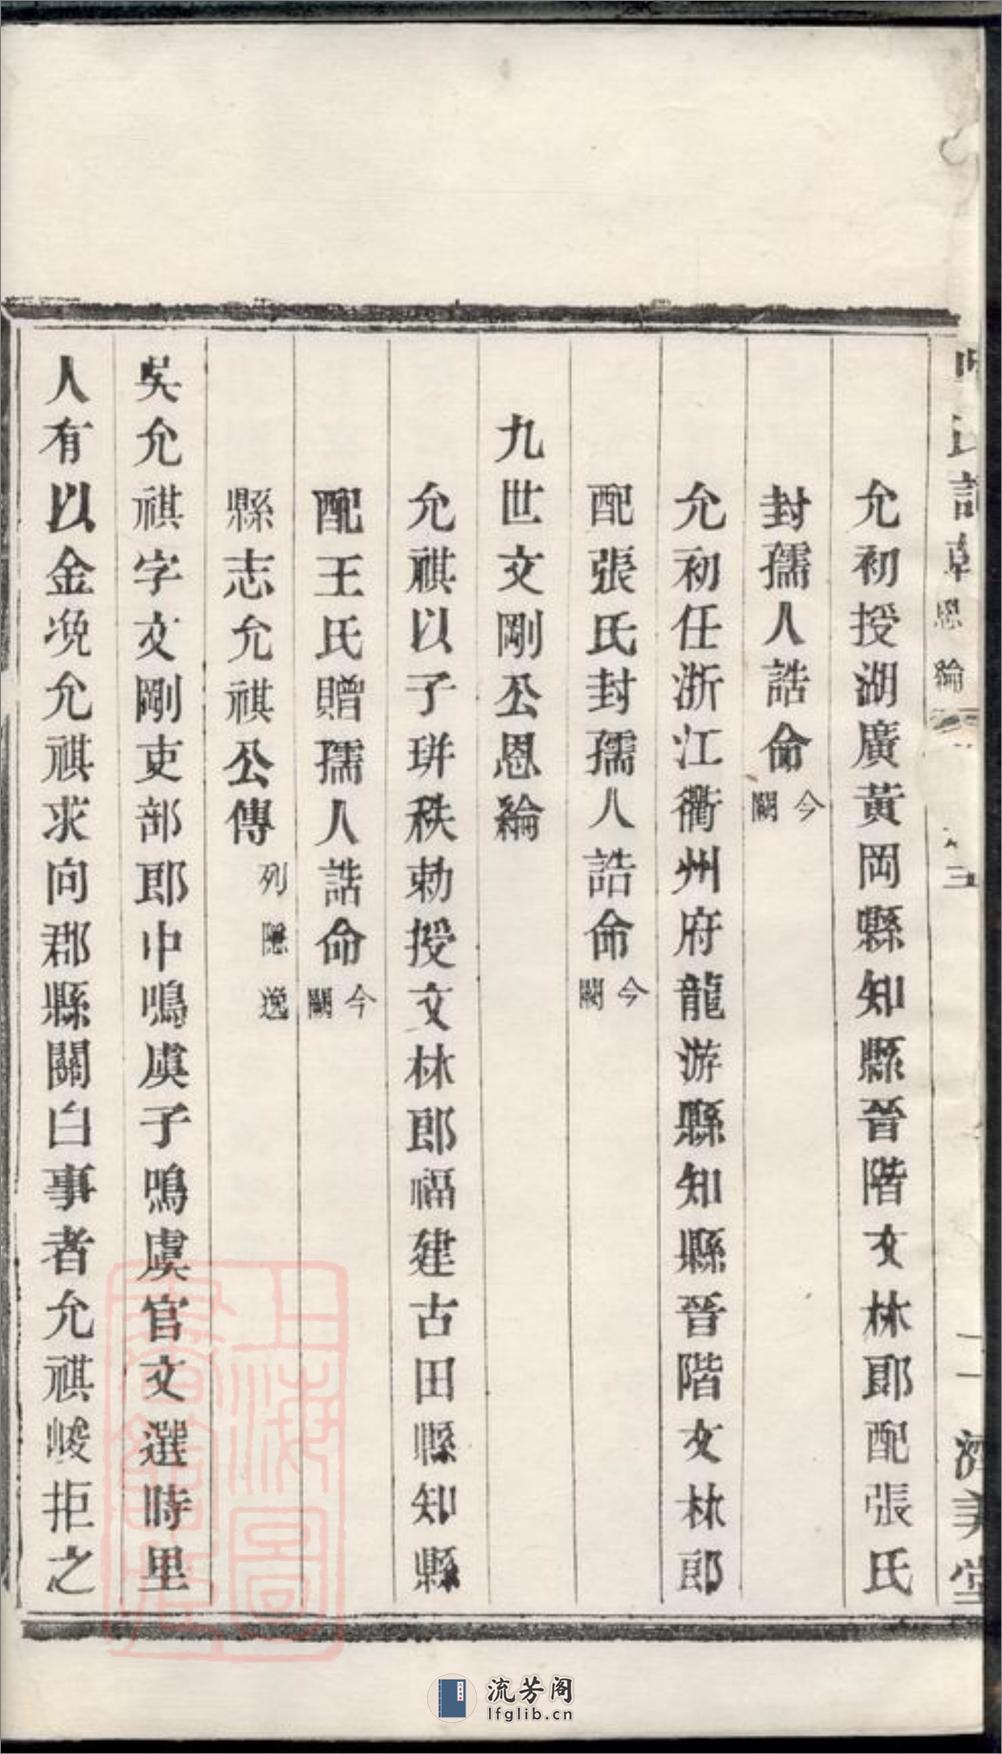 恩綸
濟美堂
允初授湖廣黃岡縣知縣晉階文林郎配張氏
封孺人誥命今闕
允初任浙江衢州府龍游縣知縣晉階文林郎
配張氏封孺人誥命今闕
九世文剛公恩綸
允祺以子玶秩勅授文林郎福建古田縣知縣
配王氏贈孺人誥命今闕
縣志允祺公傳列隱逸
吳允祺字文剛吏部郎中鳴虞子鳴虞官文選時里
人有以金浼允祺求向郡縣關白事者允祺峻拒之
上海圖書館藏
流芳阁
lfglib.cn